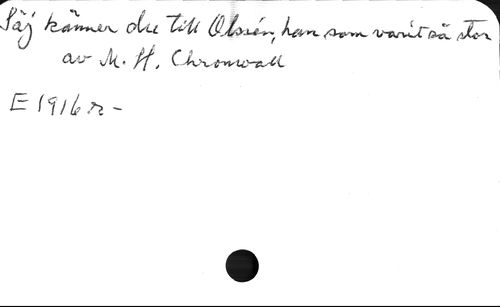 Säj känner du till Olsién, han som varit så stor
av M. H. Chronwall
E 1916